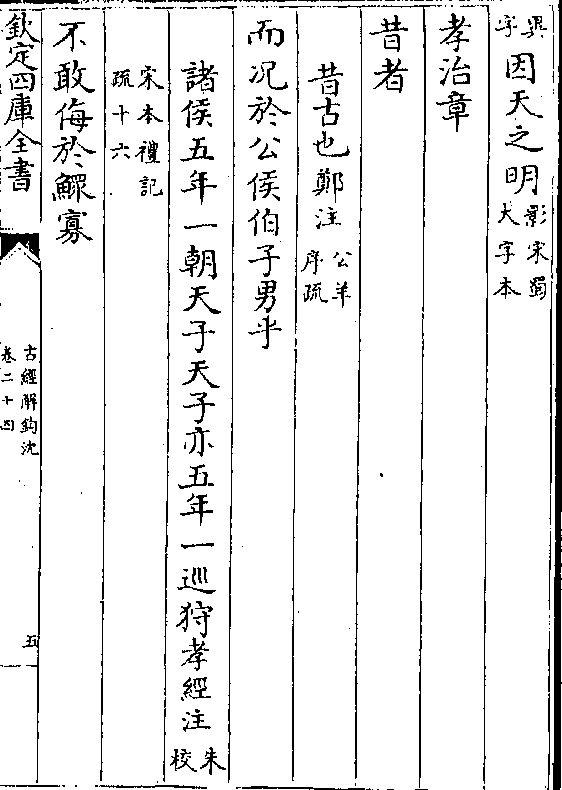 異字因天之明影宋蜀大字本
孝治章
昔者
昔古也鄭注公羊序疏
而况於公侯伯子男乎
諸侯五年一朝天子天子亦五年一巡狩孝經注朱校
宋本禮記疏十六
不敢侮於鰥寡
欽定四庫全書
古經解鉤沈
卷二十四
五